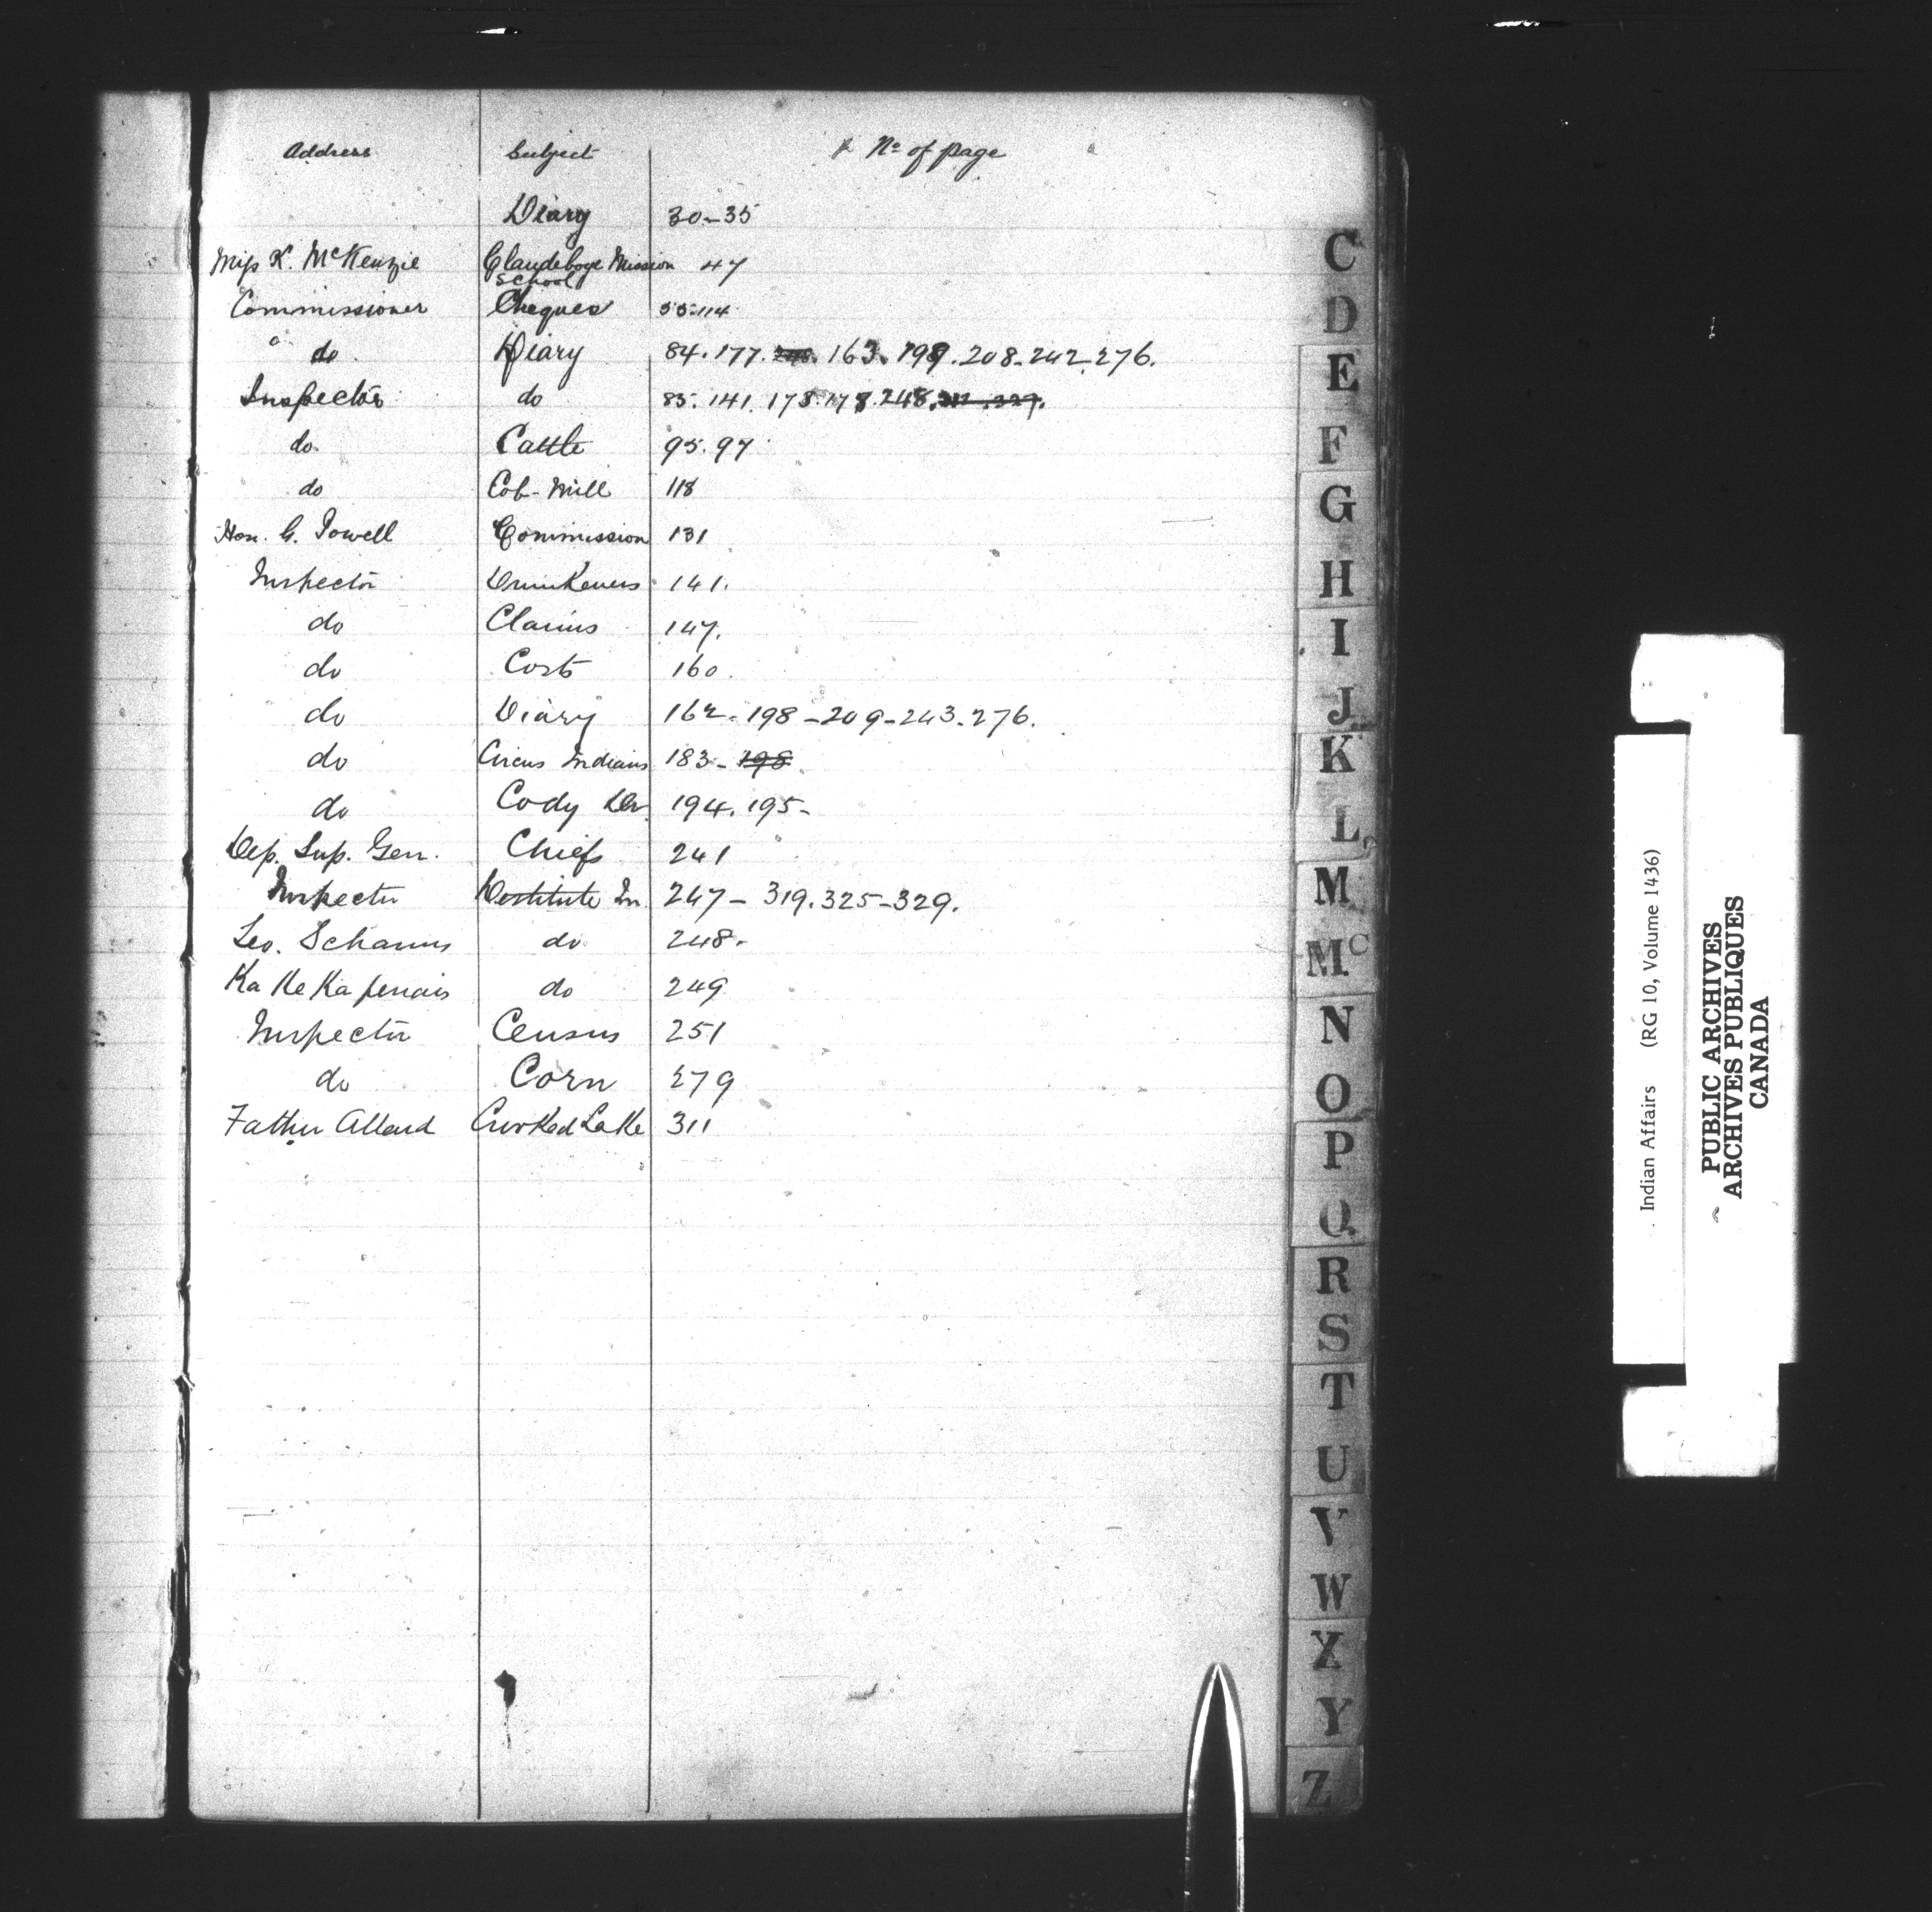 Address Subject No of page
Diary 30-35
Miss K. McKenzie Clandeboye Mission School 47
Commissioner Cheques 55.114
do Diary 84.177. 163. 199. 208-242.276.
Inspector do 85.141.178.178.248.
do Cattle 95.97
do Cob-Mill 118
Hon. G. Powell Commission 131
Inspector 141.
do Claims 147.
do Costs 160.
do Diary 162-198-209-243.276.
do Circus Indians 183-198
do Cody Dr. 194.195-
Dep. Sup. Gen. Chiefs 241
Inspector Destitute In. 247-319.325-329.
Leo. do 248.
Ka Ke Ka penais do 249
Inspector Census 251
do Corn 279
Father Allard Crooked Lake 311
C
D
E
F
G
H
I
J
K
L
M
Mc
N
O
P
Q
R
S
T
U
V
W
X
Y
Z
Indian Affairs (RG 10, Volume 1436)
PUBLIC ARCHIVES
ARCHIVES PUBLIQUES
CANADA